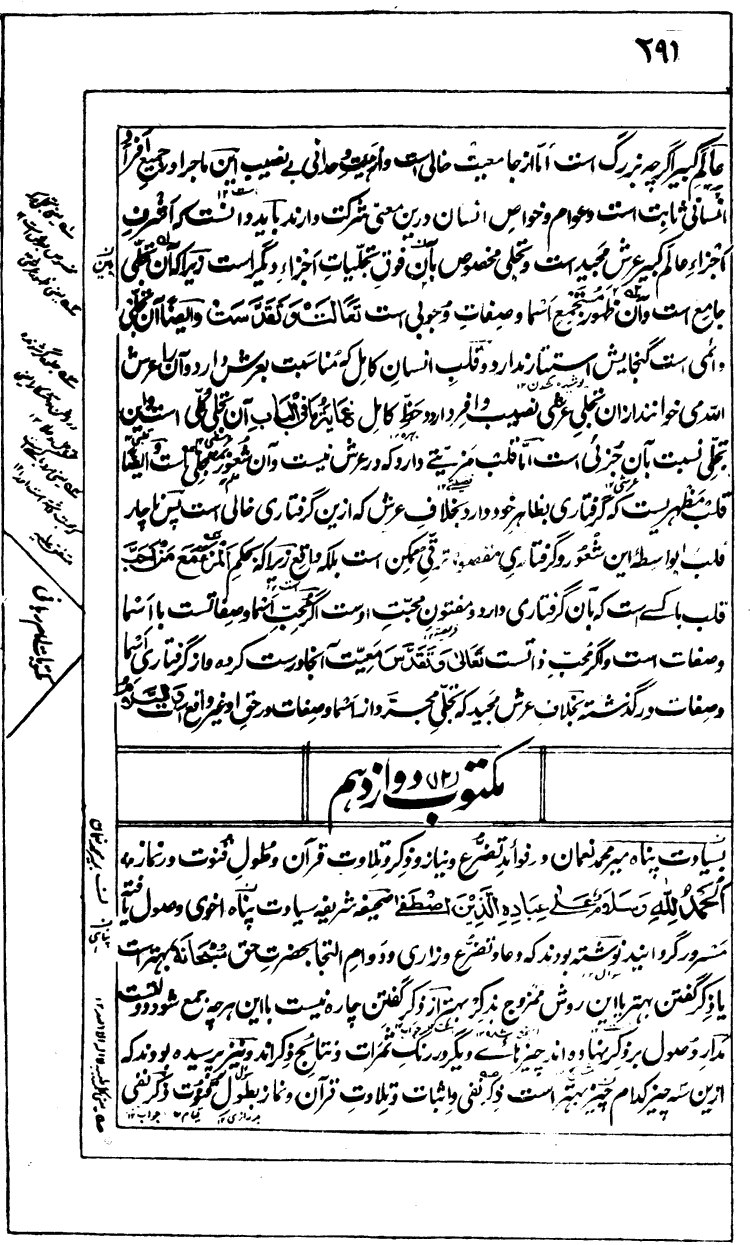 ۲۹۱
عالم کبیر اگرچه بزرگ است اما از جامعیت خالی است و از هیئت وحدانی بے نصیب این ماجرا در جمیع افراد
انسانی ثابت است و عوام و خواص انسان درین معنی شرکت دارند باید دانست که اشرف
اجزاء عالم کبیر عرش مجید است و تجلی مخصوص بآن فوق تجلیات اجزاء دیگر است زیرا که آن تجلی
جامع است و آن ظهور مستجمع اسما و صفات وجوبی است تعالت و تقدست و ایضا آن تجلی
دائمی است گنجایش استتار ندارد و قلب انسان کامل که مناسبت بعرش دارد و آن را عرش
الله می خوانند ازان تجلی عرشی نصیب وافر دارد و حظ کامل غایة ما فی الباب آن تجلی کلی است و این
تجلی نسبت بآن جزئی است اما قلب مزیتے دارد که در عرش نیست و آن شعور بمتجلی است ایضا
قلب مظهریست که گرفتاری بظاهر خود دارد بخلاف عرش که ازین گرفتاری خالی است پس ناچار
قلب بواسطه این شعور و گرفتاری بمقصود ترقی ممکن است بلکه واقع زیرا که بحکم المرء مع من احب
قلب با کسے است که بآن گرفتاری دارد و مفتون محبت اوست اگر محب اسما و صفاتست با اسما
و صفات است و اگر محب ذاتست تعالی و تقدس معیت آنجا درست کرده و از گرفتاری اسما
و صفات در گذشته بخلاف عرش مجید که تجلی مجرد از اسما و صفات در حق او غیر واقع است والسلام
مکتوب (۱۲) دوازدهم
بسیادت پناه میر محمد نعمان در فوائد تضرع و نیاز و ذکر و تلاوت قرآن و طول قنوت در نماز
الحمد لله و سلام علی عباده الذین اصطفی صحیفه شریفه سیادت پناه اخوی وصول یافته
مسرور گردانید نوشته بودند که دعا و تضرع و زاری و دوام التجا بحضرت حق سبحانه بهتر است
یا ذکر گفتن بهتر یا این روش ممزوج بذکر بهتر از ذکر گفتن چاره نیست با این هر چه جمع شود دولت است
مدار وصول بر ذکر نهاده اند چیزهائے دیگر در رنگ ثمرات و نتائج ذکراند و نیز پرسیده بودند که
ازین سه چیز کدام چیز بهتر است ذکر نفی و اثبات و تلاوت قرآن و نماز بطول قنوت ذکر نفی
مکتوبات امام ربانی